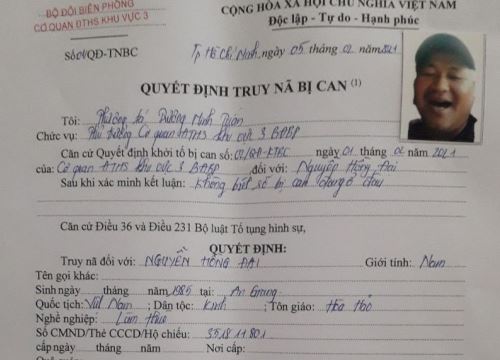 BỘ ĐỘI BIÊN PHÒNG
CƠ QUAN ĐTHS KHU VỰC 3
CỘNG HÒA XÃ HỘI CHỦ NGHĨA VIỆT NAM
Độc lập - Tự do - Hạnh phúc
Số: 01/QĐ-TNBC
Tp Hồ Chí Minh, ngày 05 tháng 02 năm 2021
QUYẾT ĐỊNH TRUY NÃ BỊ CAN (1)
Tôi: Dương Minh
Chức vụ: Phó trưởng Cơ quan ĐTHS khu vực 3 BĐBP
Căn cứ Quyết định khởi tố bị can số: 02/QĐ-KTBC ngày 01 tháng 02 năm 2021
của: Cơ quan ĐTHS khu vực 3 BĐBP đối với: Nguyễn Hồng Đại
Sau khi xác minh kết luận: Không biết số bị can đang ở đâu
Căn cứ Điều 36 và Điều 231 Bộ luật Tố tụng hình sự,
QUYẾT ĐỊNH:
Truy nã đối với: NGUYỄN HỒNG ĐẠI Giới tính: Nam
Tên gọi khác:
Sinh ngày tháng năm 1985 tại: An Giang
Quốc tịch: Việt Nam; Dân tộc: Kinh; Tôn giáo: Hòa Hảo
Nghề nghiệp: Làm thuê
Số CMND/Thẻ CCCD/Hộ chiếu: 351811801
cấp ngày tháng năm Nơi cấp: